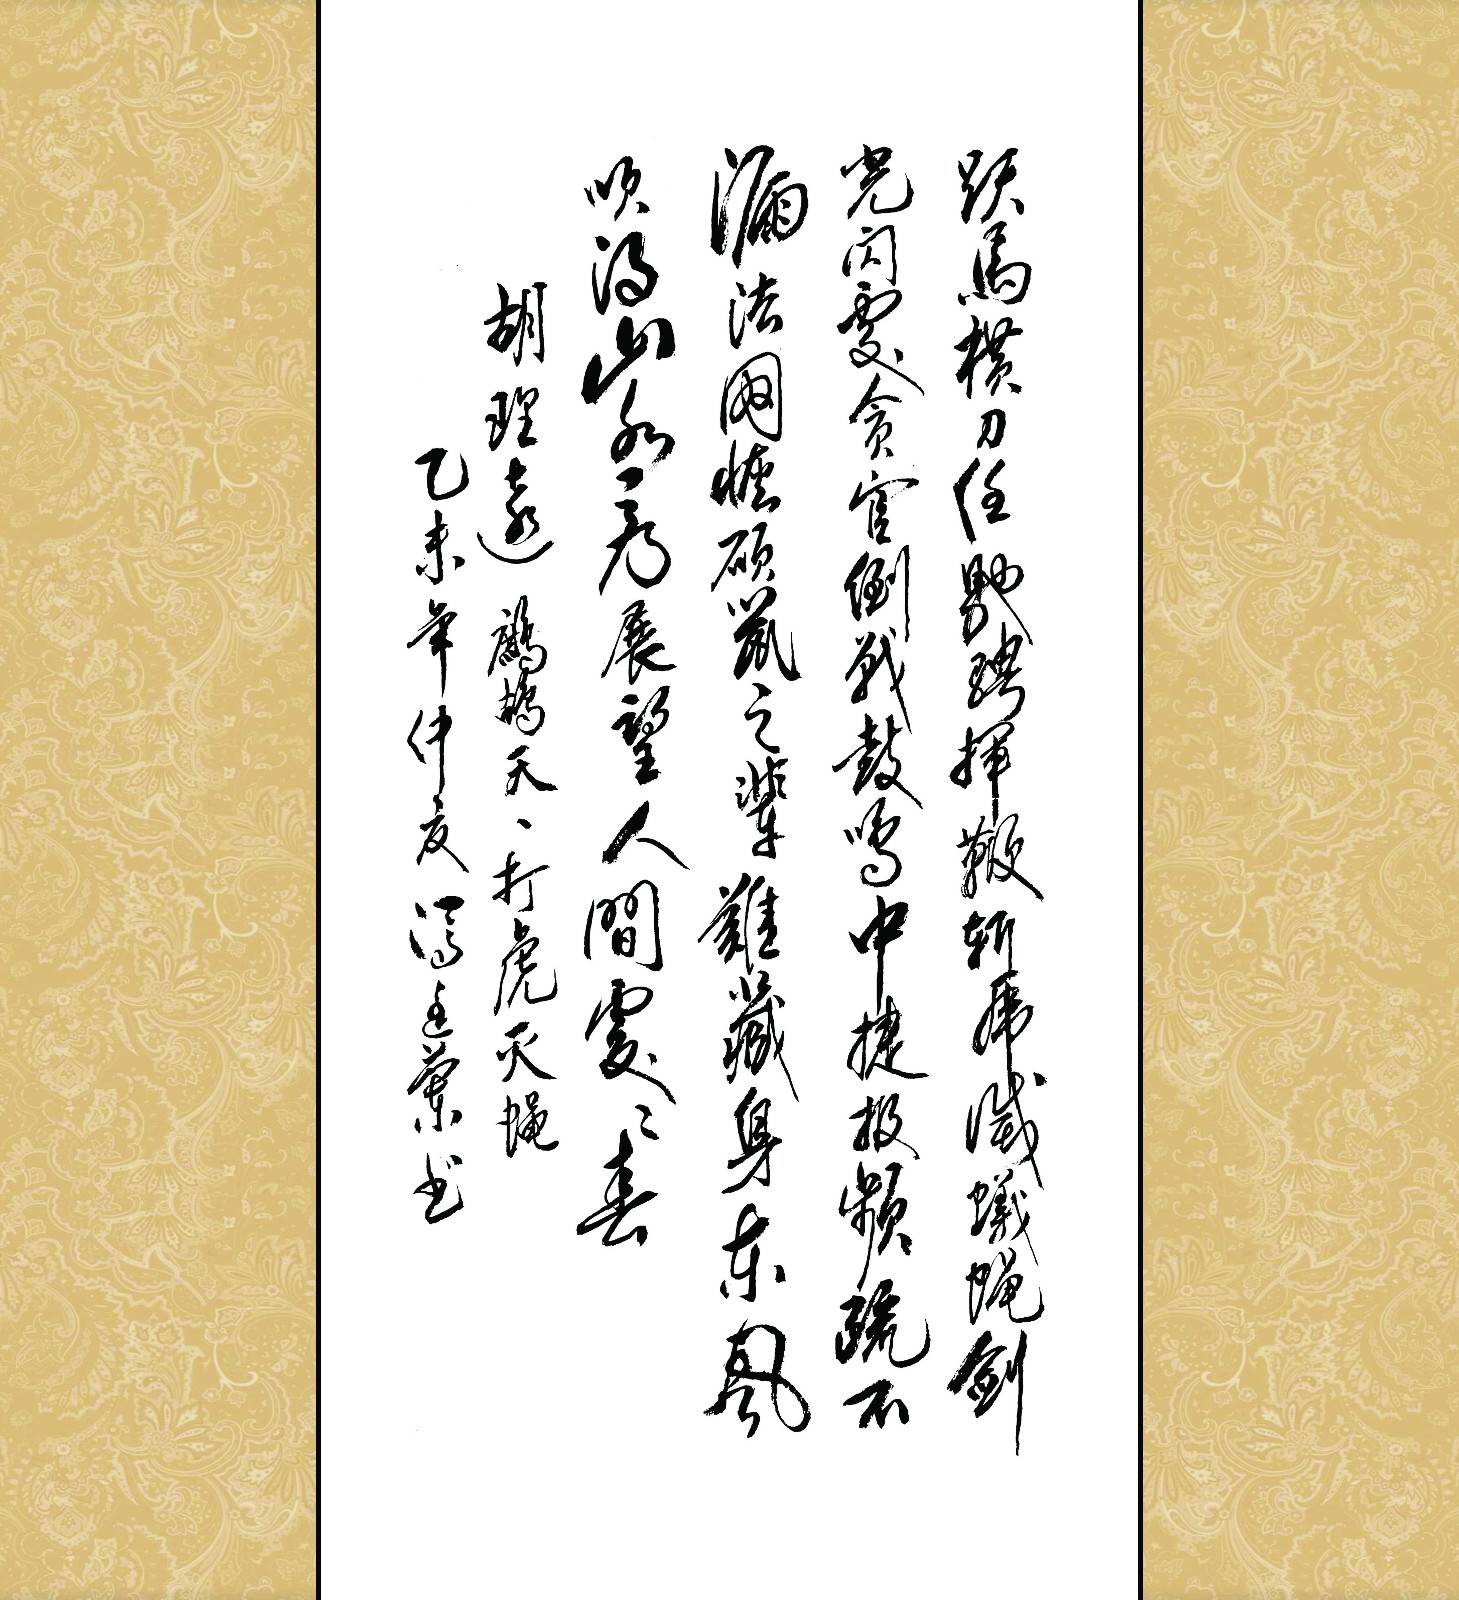 跃马横刀任驰骋挥鞭斩虎灭蚁蝇剑
光闪处贪官倒战鼓鸣中捷报频疏不
漏法网恢硕鼠之辈难藏身东风
吹得山河秀展望人间处处春
胡理远 鹧鸪天、打虎灭蝇
乙未年仲夏 冯 兰书